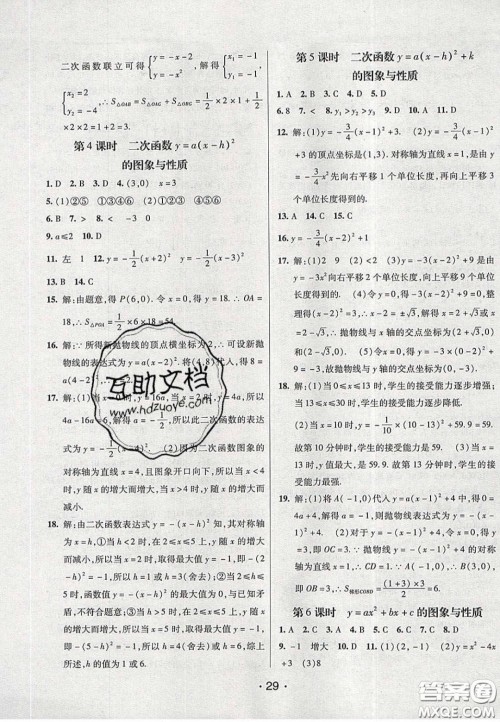 二次函数联立可得{y=-x-2, y=-x², 解得{x₁=-1, y₁=-1,
{x₂=2, y₂=-4, ∴S△OAB=S△OAC+S△OBC=1/2×2×1+1/2
×2×2=3.
第4课时 二次函数y=a(x-h)²
的图象与性质
1. D 2. B 3. D 4. (3,0) x=3
5. (1)②④⑥ (2)①③⑤ (3)④⑤⑥
6. B 7. > 8. < -3 -1
9. a≤2 10. D
11. 左 1 12. y=-1/2(x+2)² y=-1/2(x-3)²
13. B 14. C
15. 解:由题意,得P(6,0). 令x=0,得y=18. ∴OA=
18. ∴S△POA=1/2×6×18=54
16. 解:∵所得新抛物线的顶点横坐标为2,∴可设新抛
物线的表达式为y=a(x-2)². 将(4,8)代入,得8=
17.
4a-16a=6,
数的表达式为
对称轴为直线x=4,且图象开口向下,所以当x>4时,y随
x的增大而减小,当x<4时,y随x的增大而增大.
18. 解:由二次函数表达式y=-(x-h)²知,其对称轴
为x=h;①当h<2时,在2≤x≤5上,y随x的增大
而减小,所以当x=2时,取得最大值y=-1,即-(2-
h)²=-1,得h=1或h=3(舍去);②当2≤h≤5时,
在2≤x≤5上,可知当x=h时,取得最大值y=0,矛
盾,不符合题意;③当h>5时,在2≤x≤5上,y随x
的增大而增大,所以当x=5时,取得最大值y=-1,
即-(5-h)²=-1,得h=6或h=4(舍去);综上所
述,h的值为1或6.
第5课时 二次函数y=a(x-h)²+k
的图象与性质
6. 8 7. > 8. y₁>y₂>y₃ 9. C 10. B 11. D
12. 解:(1)y=-3/4(x-1)²+3 (2)抛物线y=-3/4(x-
1)²+3的顶点坐标是(1,3). 对称轴为直线x=1,是由
抛物线y=-3/4x²向右平移1个单位长度,再向上平移
3个单位长度得到的.
13. A 14. C 15. C
16. y=-1/2(x-2)²+1
17. 解:(1)2 9 (2)抛物线y=-3(x-2)²+9是由
y=-3x²向右平移2个单位长度,再向上平移9个单
位长度得到的. (3)令y=0,即-3(x-2)²+9=0,
解得x₁=2+√3,x₂=2-√3,∴抛物线与x轴的交点
坐标为(2+√3,0),(2-√3,0). 令x=0,得y=-3×
(-2)²+9=-3. ∴抛物线与y轴的交点坐标为
(0,-3).
18. 解:(1)当0≤x≤13时,学生的接受能力逐步增强;
当13≤x≤30时,学生的接受能力逐步下降. (2)当
x=10时,y=-1/10×(10-13)²+59.9=59.
故第10分钟时,学生的接受能力是59. (3)当x=
13时,y有最大值,最大值是59.9. 故第13分钟时,
学生的接受能力最强.
19. 解:(1)将A(-1,0)代入y=a(x-1)²+4,得0=
4a+4,解得a=-1,则抛物线表达式为y=-(x-1)²
+4. (2)对于抛物线y=-(x-1)²+4,令x=0,得到
y=3,即OC=3. ∵抛物线对称轴为直线x=1,
∴CD=1. ∵A(-1,0),∴B(3,0),
即OB=3,∴S梯形COBD=(1+3)×3/2=6.
第6课时 y=ax²+bx+c的图象与性质
1. A 2. -1 增大 3. D 4. B 5. (1)y=-2x²-4x
+3 (3)8
互助文档
www.hdzuoye.com
· 29 ·
答案圈
MXQE.COM